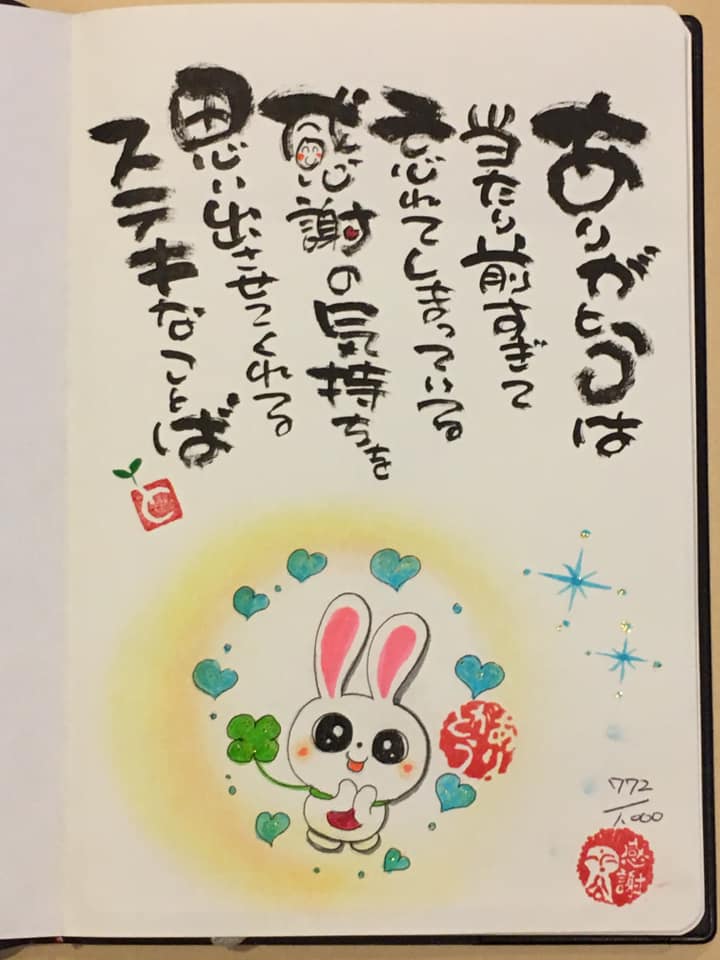 ありがとうは
当たり前すぎて
忘れてしまっている
感謝の気持ちを
思い出させてくれる
ステキなことば
と
ありがとう
772/1.000
感謝